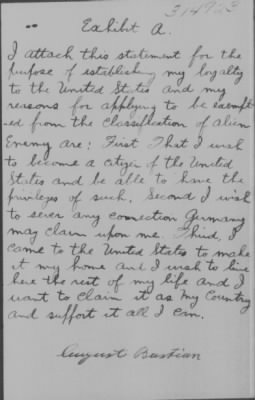 314723
Exhibit A.
I attach this statement for the
purpose of establishing my loyalty
to the United States and my
reasons for applying to be exempt-
ed from the classification of alien
Enemy are: First That I wish
to become a citizen of the United
States and be able to have the
privileges of such. Second I wish
to sever any connection Germany
may claim upon me. Third, I
came to the United States to make
it my home and I wish to live
here the rest of my life and I
want to claim it as my Country
and support it all I can.
August Bastian